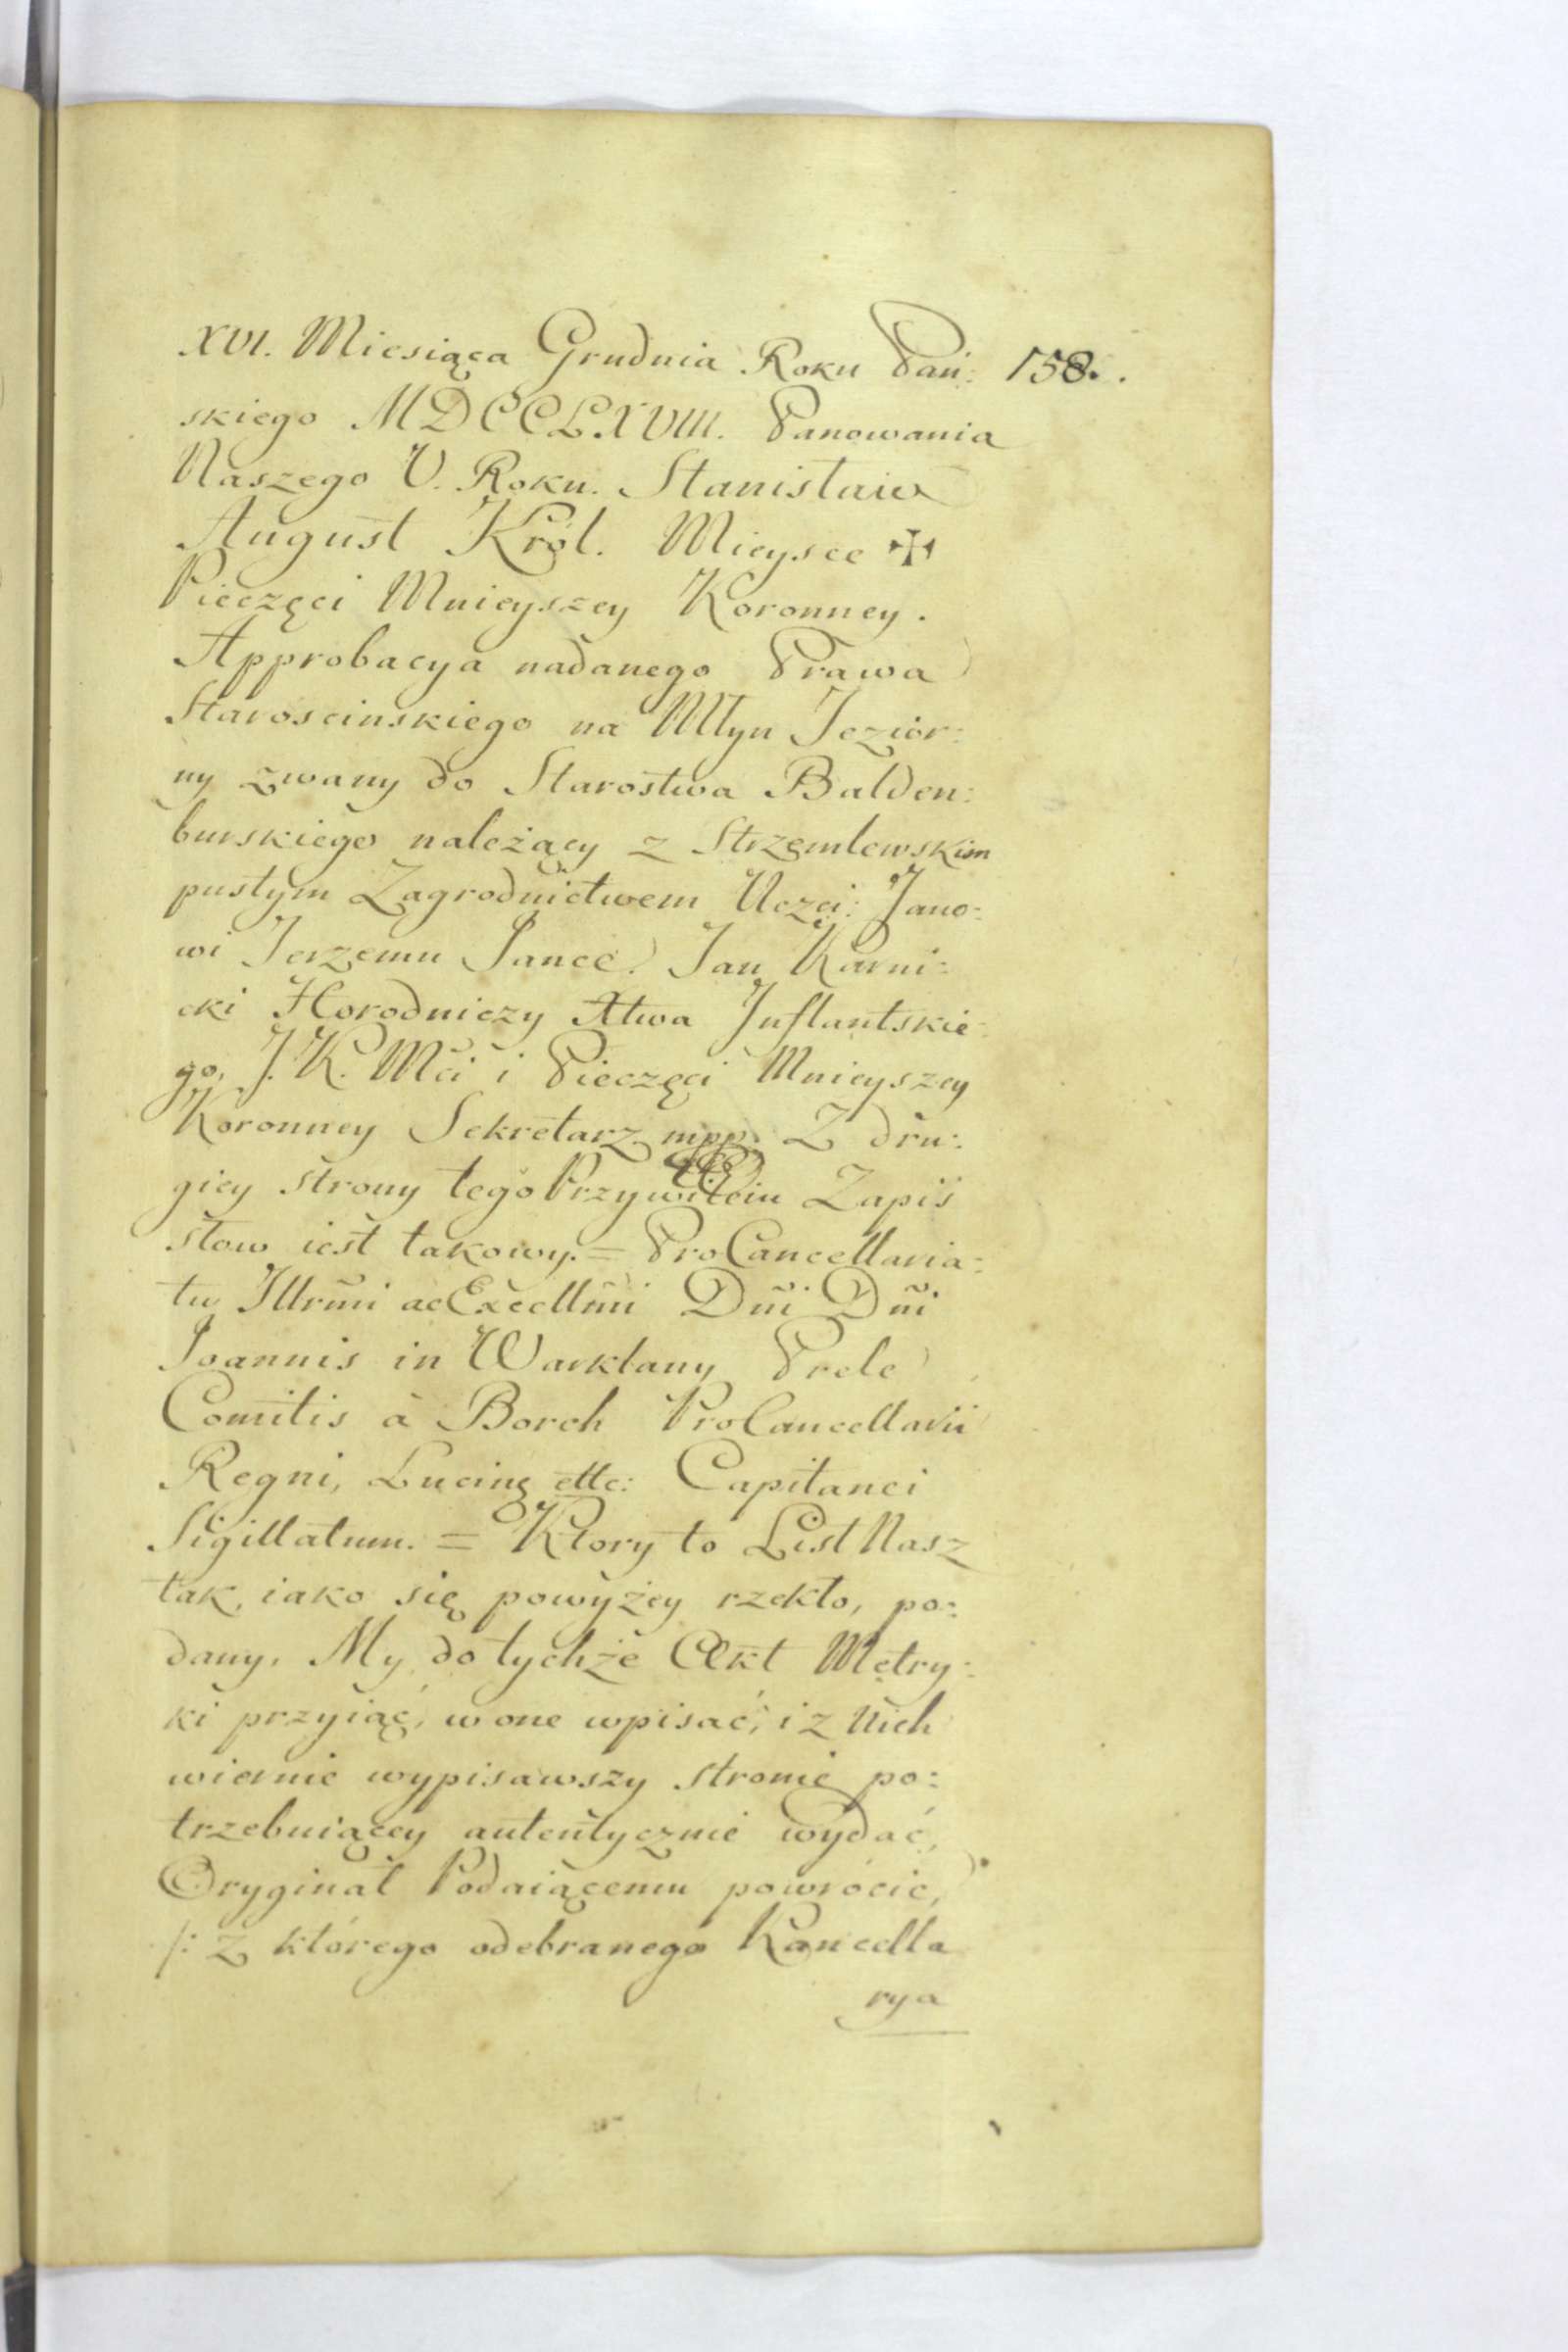 XVI. Miesiąca Grudnia Roku Pań: 158.
skiego MDCCLXVIII. Panowania
Naszego V. Roku. Stanisław
August Król. Mieysce ✠
Pieczęci Mnieyszey Koronney.
Approbacya nadanego Prawa
Staroscinskiego na Młyn Jezior:
ny zwany do Starostwa Balden:
burskiego należący z Strzemlewskim
pustym Zagrodnictwem Uczci: Jano:
wi Jerzemu Jance. Jan Karni:
cki Horodniczy Xtwa Inflantskie:
go, J. K. Mci i Pieczęci Mnieyszey
Koronney Sekretarz mpp. Z dru:
giey strony tego Przywileiu Zapis
słow iest takowy. = ProCancellaria:
tu Illrmi ac Excellmi Dni Dni
Joannis in Warklany Prele
Comitis à Borch ProCancellarii
Regni, Lucinę ettc: Capitanei
Sigillatum. = Ktory to List Nasz
tak, iako się powyżey rzekło, po:
dany, My do tychże Akt Metry:
ki przyiąć, w one wpisać, i z nich
wiernie wypisawszy stronie po:
trzebuiącey autentycznie wydać,
Oryginał Podaiącemu powrócić,
/: z którego odebranego Kancella
rya